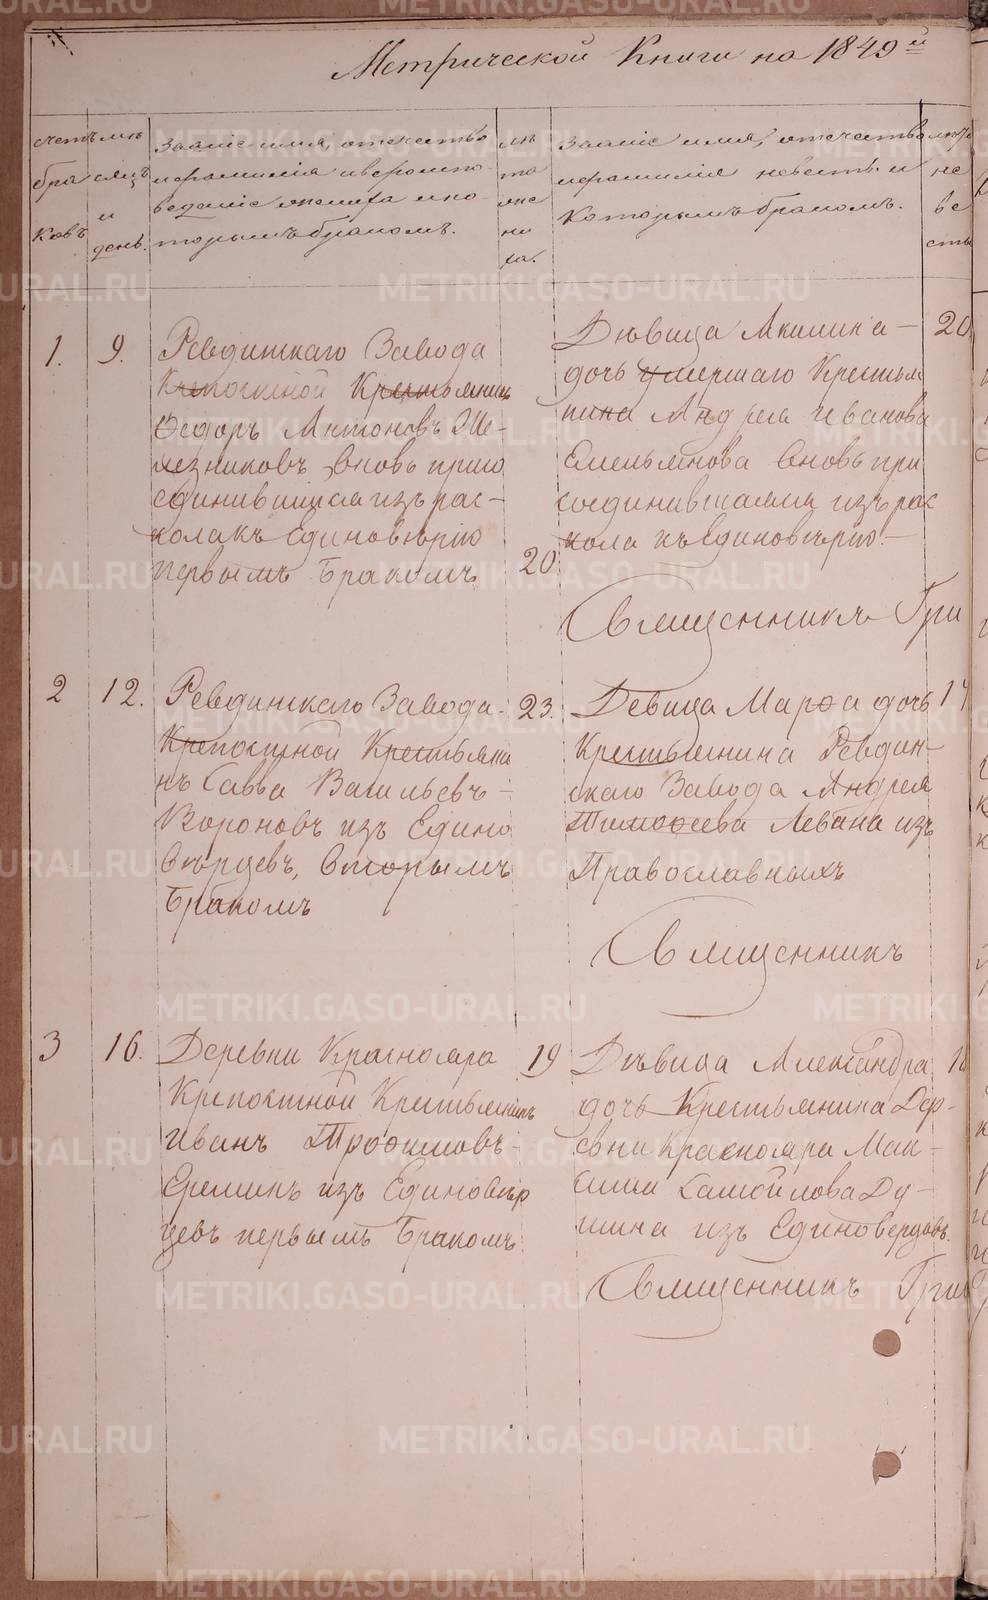 Метрической Книги на 1849й
счетъ
бра
ковъ
мѣ
сяцъ
и
день.
Званіе имя, отечество
и фамилія и вѣроиспо-
веданіе жениха и ко-
торымъ бракомъ.
лѣ
та
же
ни
ха.
Званіе имя, отечество
и фамилія невесты и
которымъ бракомъ.
лѣта
не
ве
сты
1. 9.
Ревдинскаго Завода
Крепостной Крестьянинъ
Ѳедоръ Антоновъ Же-
лезниковъ, вновь присо
единившійся изъ рас-
кола къ Единовѣрію
первымъ Бракомъ
20
Дѣвица Акилина
дочь умершаго Крестья
нина Андрея Иванова
Емельянова вновь при
соединившаяся изъ рас
кола къ Единовѣрію.
20
Священникъ Гри
2 12.
Ревдинскаго Завода
Крепостной Крестьяни
нъ Савва Васильевъ
Вороновъ изъ Едино
вѣрцевъ, вторымъ
Бракомъ
23.
Девица Марѳа дочь
Крестьянина Ревдин-
скаго Завода Андрея
Тимоѳеева Левина изъ
Православныхъ
Священникъ
3 16.
Деревни Краснояра
Крепостной Крестьянинъ
Иванъ Троѳимовъ
Ереминъ изъ Единовѣр
цевъ первымъ Бракомъ
19
Дѣвица Александра
дочь Крестьянина Дер-
евни Краснояра Мак-
сима Самойлова Ду-
шина изъ Единоверцовъ.
Священникъ Григ
METRIKI.GASO-URAL.RU